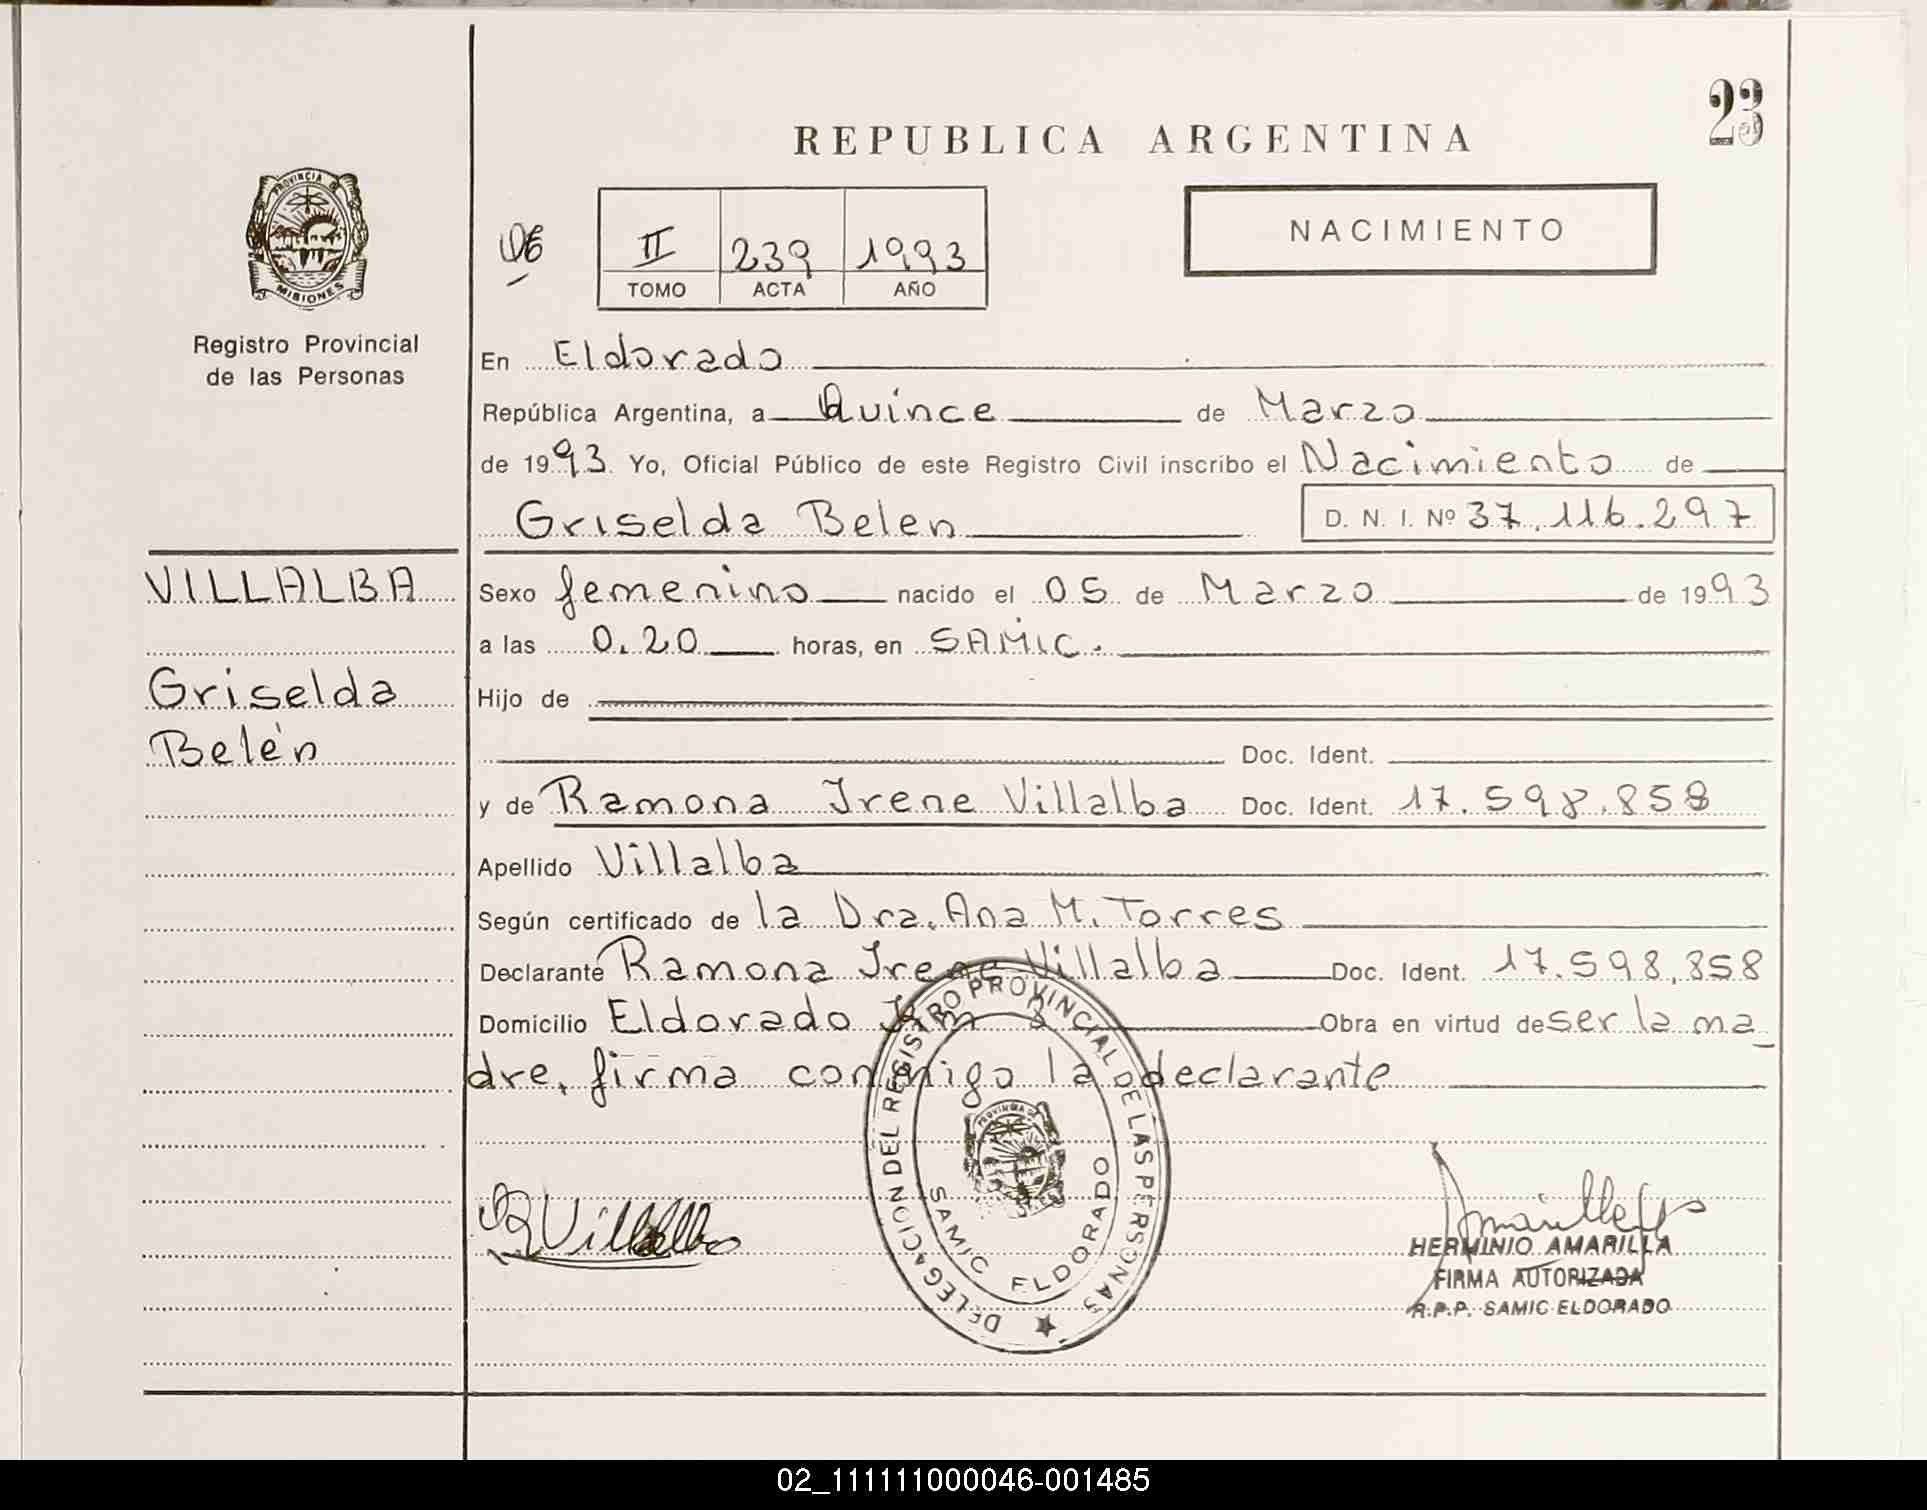 23
REPUBLICA ARGENTINA
PROVINCIA DE
MISIONES
Registro Provincial
de las Personas
II 239 1993
TOMO ACTA AÑO
NACIMIENTO
En Eldorado
República Argentina, a Quince de Marzo
de 1993 Yo, Oficial Público de este Registro Civil inscribo el Nacimiento de
Griselda Belen D. N. I. Nº 37.116.297
VILLALBA
Griselda
Belén
Sexo femenino nacido el 05 de Marzo de 1993
a las 0.20 horas, en SAMIC.
Hijo de
Doc. Ident.
y de Ramona Irene Villalba Doc. Ident. 17.598.858
Apellido Villalba
Según certificado de la Dra. Ana M. Torres
Declarante Ramona Irene Villalba Doc. Ident. 17.598.858
Domicilio Eldorado Km 3 Obra en virtud de ser la ma
dre, firma conmigo la declarante
DELEGACION DEL REGISTRO PROVINCIAL DE LAS PERSONAS
SAMIC ELDORADO
R Villalba
HERMINIO AMARILLA
FIRMA AUTORIZADA
R.P.P. SAMIC ELDORADO
02_111111000046-001485